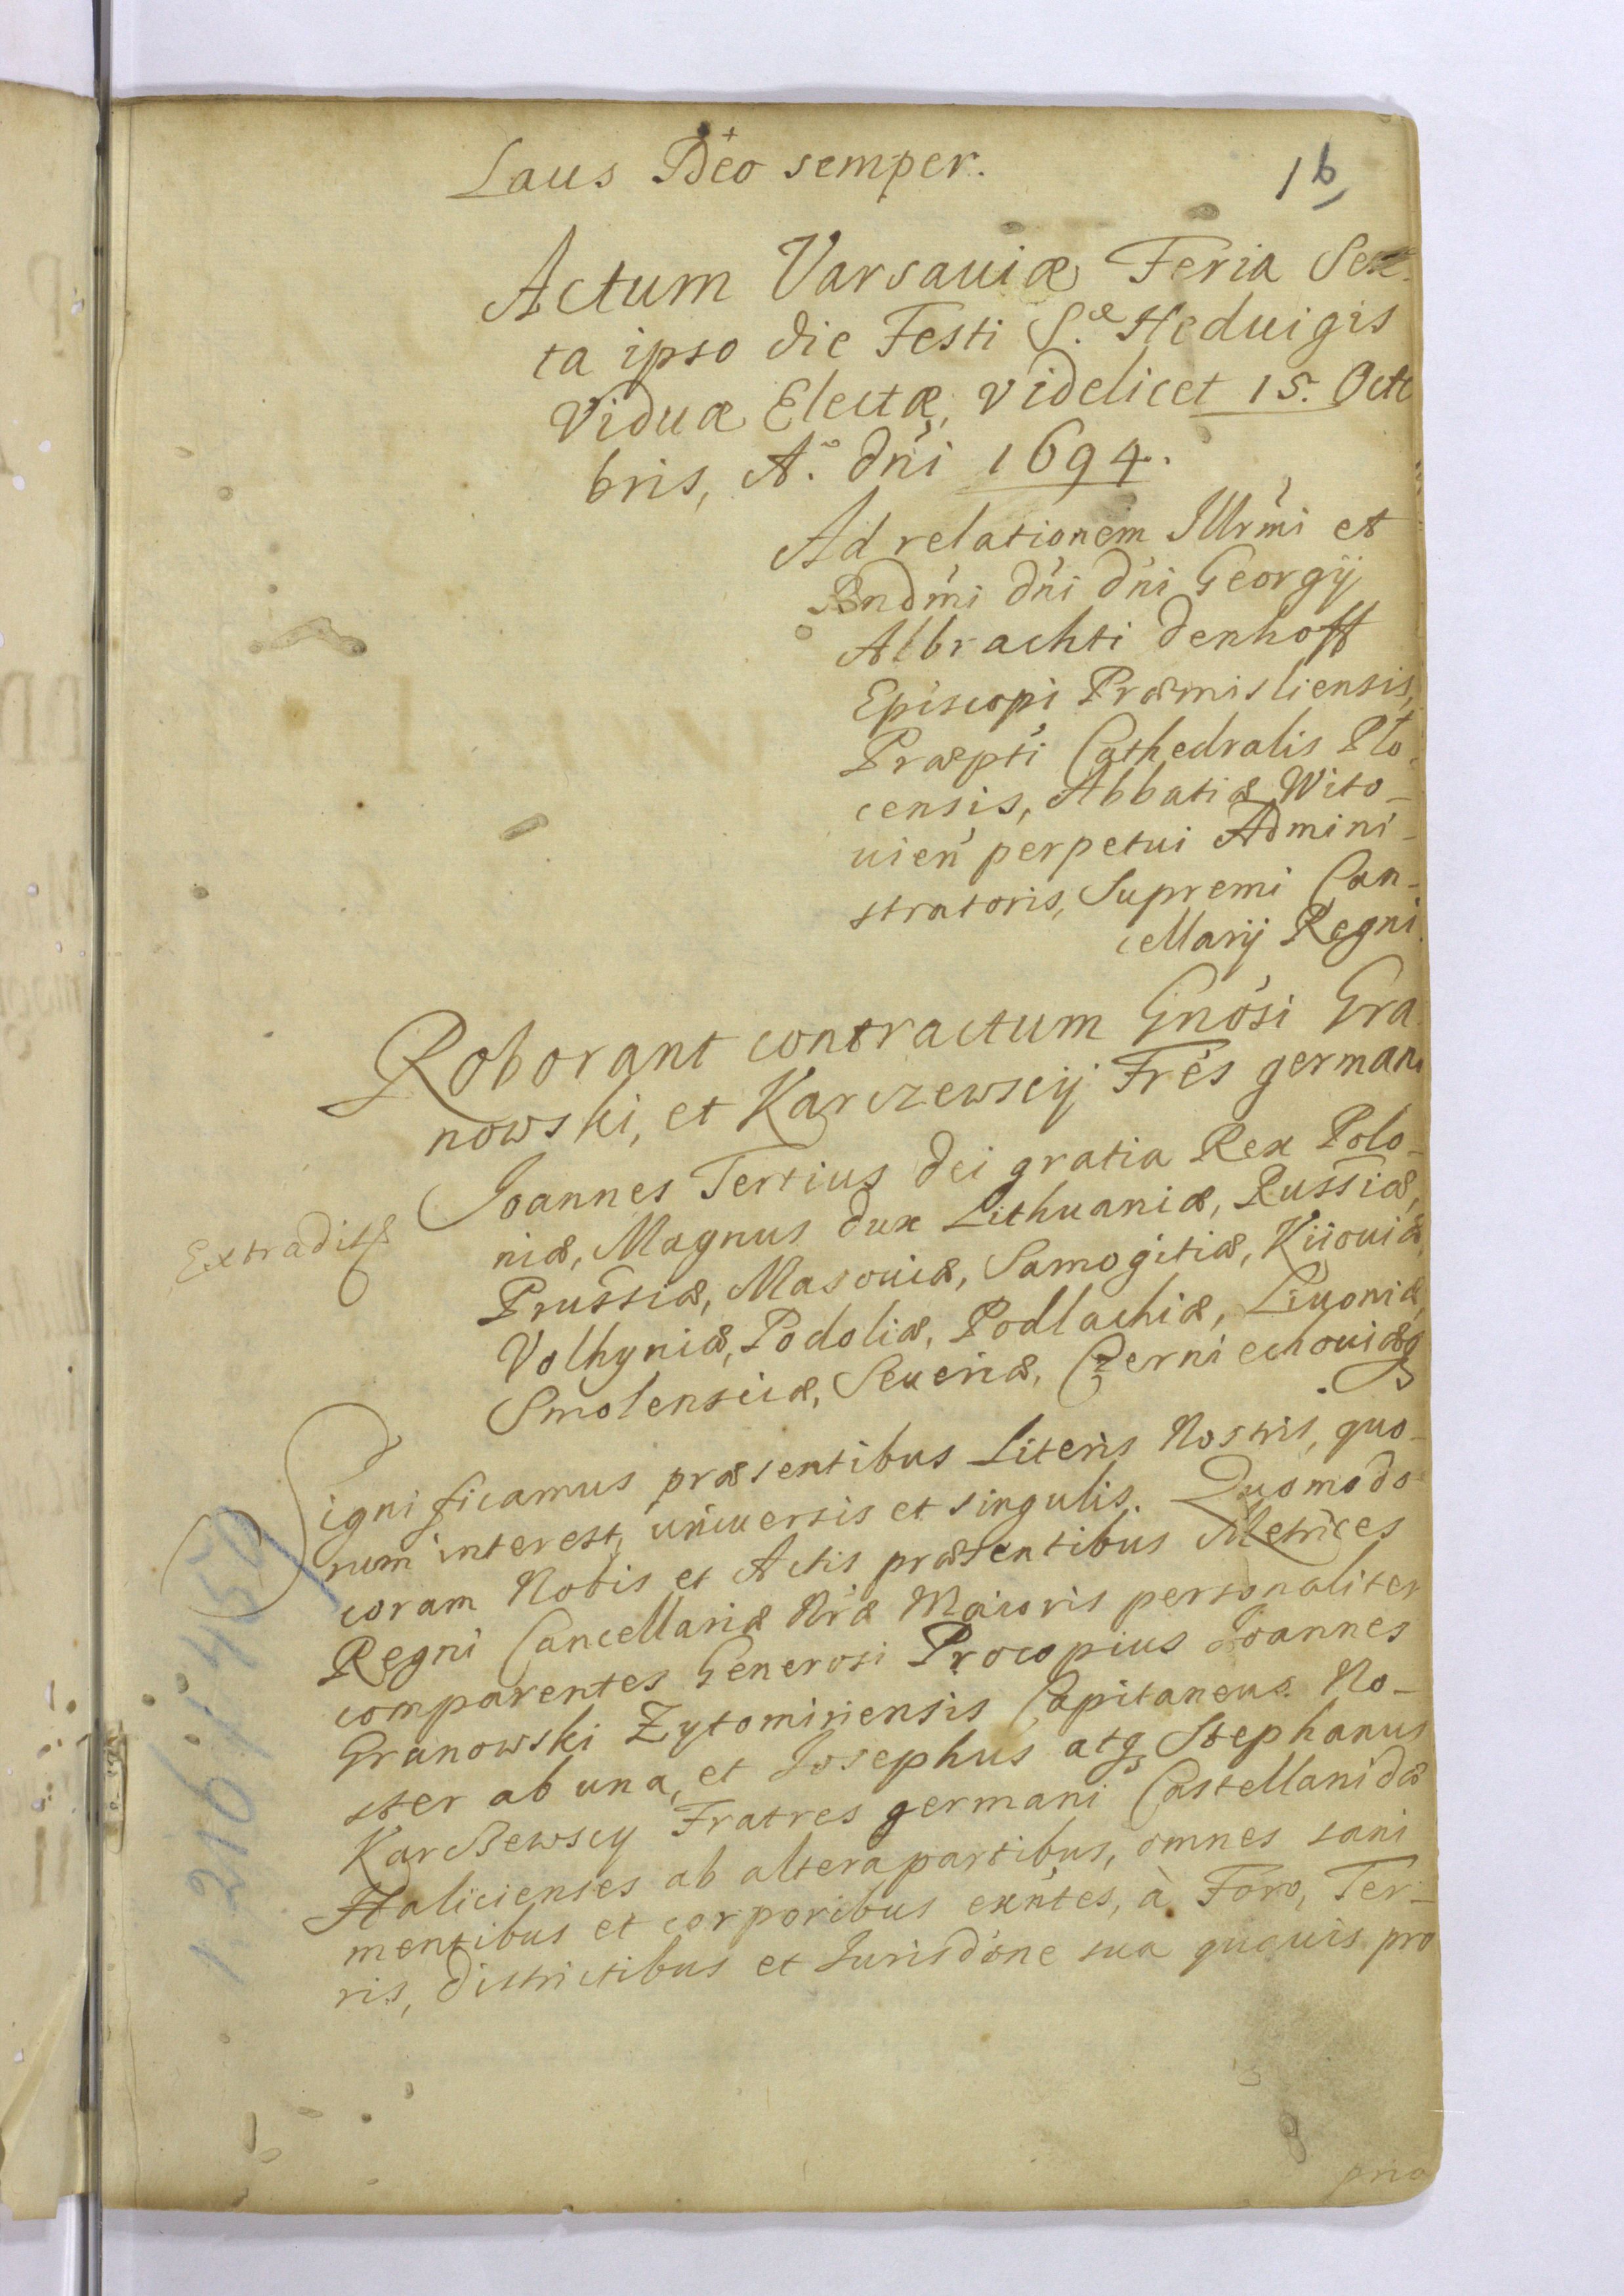 Laus Deo semper.
16
Actum Varsauiæ Feria Sex-
ta ipso die Festi S.æ Heduigis
Viduæ Electæ, videlicet 15. Octo
bris, A.o dńi 1694.
Ad relationem Illrḿi et
Rndḿi dńi dńi Georgij
Albrachti denhoff
Episcopi Præmisliensis,
Præpti Cathedralis Plo-
censis, Abbatiæ Wito-
uień perpetui Admini-
stratoris, Supremi Can-
cellarij Regni.
Roborant contractum Gnósi Gra
nowski, et Karczewscij Frés germani
Joannes Tertius dei gratia Rex Polo-
niæ, Magnus dux Lithuaniæ, Russiæ,
Extradit
Prussiæ, Masouiæ, Samogitiæ, Kijouiæ,
Volhyniæ, Podoliæ, Podlachiæ, Liuoniæ,
Smolensciæ, Seueriæ, Czerniechouiæq
Significamus præsentibus Literis Nostris, quo-
rum interest, uniuersis et singulis. Quomodo
coram Nobis et Actis præsentibus Metrices
Regni Cancellariæ Nræ Maioris personaliter
comparentes Generosi Procopius Joannes
Granowski Zytomiriensis Capitaneus No-
ster ab una, et Josephus atq Stephanus
Karczewscy Fratres germani Castellanidæ
Halicienses ab altera partibus, omnes sani
mentibus et corporibus exńtes, à Foro, Ter-
ris, districtibus et Jurisdóne sua quauis pro
prio